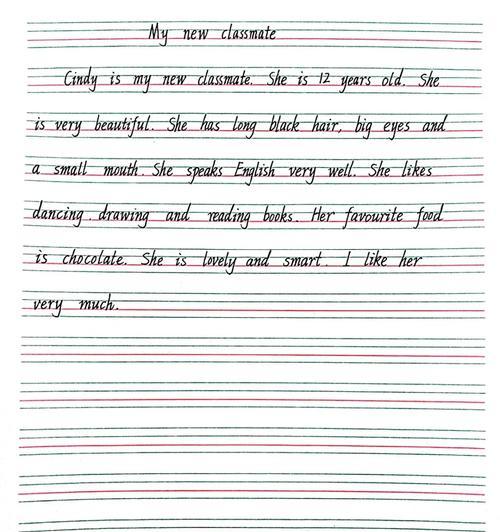 My new classmate
Cindy is my new classmate. She is 12 years old. She
is very beautiful. She has long black hair, big eyes and
a small mouth. She speaks English very well. She likes
dancing. drawing and reading books. Her favourite food
is chocolate. She is lovely and smart. I like her
very much.